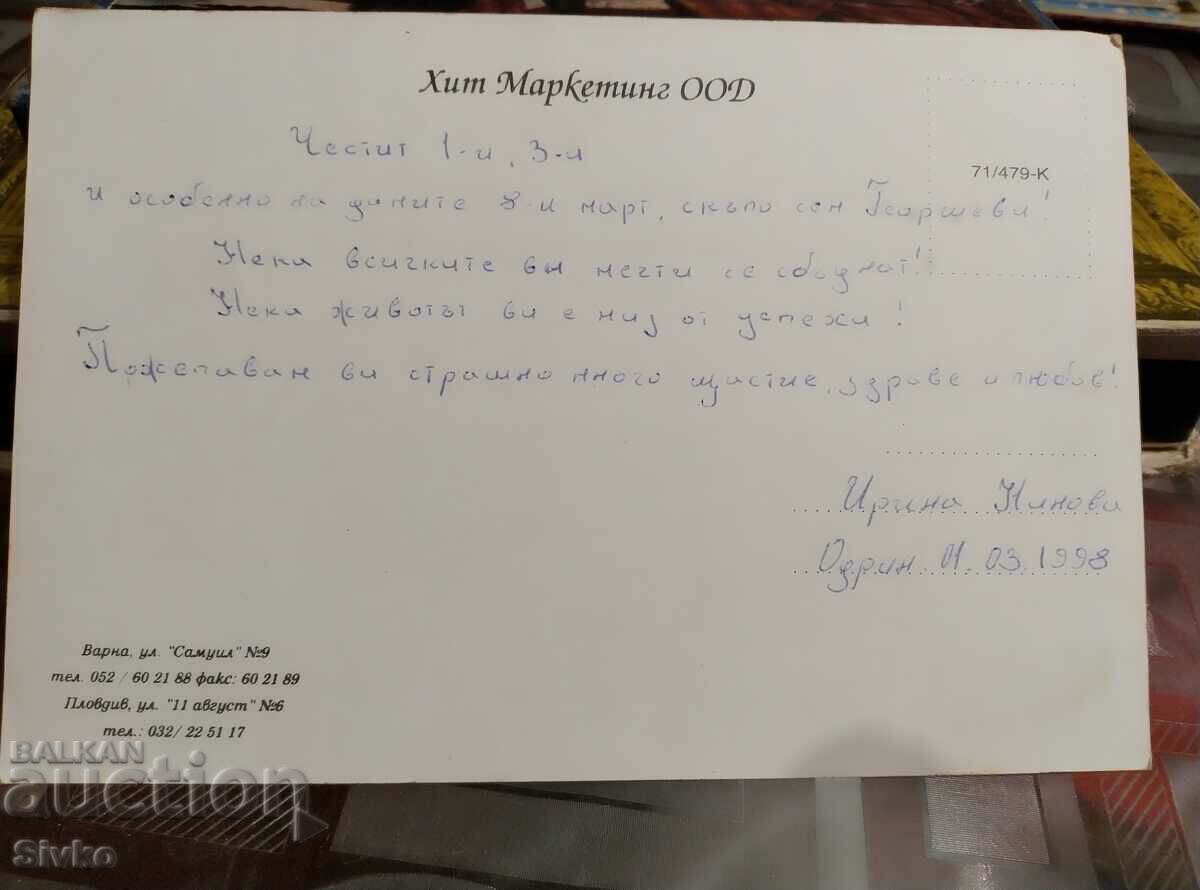 Хит Маркетинг ООД
71/479-К
Честит 1-и, 3-и
и особенно на дамите 8-и март, скъпо сем. Георгиеви!
Нека всичките ви мечти се сбъднат!
Нека животът ви е низ от успехи!
Пожелавам ви страшно много щастие, здраве и любов!
Ирина
Одрин 01.03.1998
Варна, ул. "Самуил" №9
тел. 052 / 60 21 88 факс: 60 21 89
Пловдив, ул. "11 август" №6
тел.: 032/ 22 51 17
BALKAN
auction
Sivko